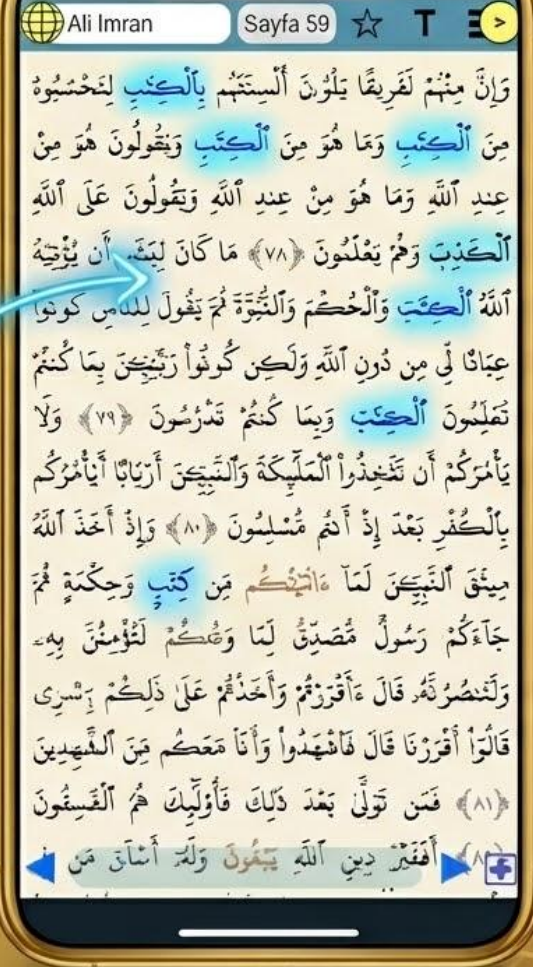 Ali Imran
Sayfa 59
T
وَإِنَّ مِنْهُمْ لَفَرِيقًا يَلْوُۥنَ أَلْسِنَتَهُم بِٱلْكِتَٰبِ لِتَحْسَبُوهُ
مِنَ ٱلْكِتَٰبِ وَمَا هُوَ مِنَ ٱلْكِتَٰبِ وَيَقُولُونَ هُوَ مِنْ
عِندِ ٱللَّهِ وَمَا هُوَ مِنْ عِندِ ٱللَّهِ وَيَقُولُونَ عَلَى ٱللَّهِ
ٱلْكَذِبَ وَهُمْ يَعْلَمُونَ ﴿٧٨﴾ مَا كَانَ أَن يُؤْتِيَهُ
ٱللَّهُ ٱلْكِتَٰبَ وَٱلْحُكْمَ وَٱلنُّبُوَّةَ ثُمَّ يَقُولَ لِلنَّاسِ كُونُوا۟
عِبَادًا لِّى مِن دُونِ ٱللَّهِ وَلَٰكِن كُونُوا۟ رَبَّٰنِيِّۦنَ بِمَا كُنتُمْ
تُعَلِّمُونَ ٱلْكِتَٰبَ وَبِمَا كُنتُمْ تَدْرُسُونَ ﴿٧٩﴾ وَلَا
يَأْمُرَكُمْ أَن تَتَّخِذُوا۟ ٱلْمَلَٰٓئِكَةَ وَٱلنَّبِيِّۦنَ أَرْبَابًا أَيَأْمُرُكُم
بِٱلْكُفْرِ بَعْدَ إِذْ أَنتُم مُّسْلِمُونَ ﴿٨٠﴾ وَإِذْ أَخَذَ ٱللَّهُ
مِيثَٰقَ ٱلنَّبِيِّۦنَ لَمَآ ءَاتَيْتُكُم مِّن كِتَٰبٍ وَحِكْمَةٍ ثُمَّ
جَآءَكُمْ رَسُولٌ مُّصَدِّقٌ لِّمَا لَتُؤْمِنُنَّ بِهِۦ
وَلَتَنصُرُنَّهُۥ قَالَ ءَأَقْرَرْتُمْ وَأَخَذْتُمْ عَلَىٰ ذَٰلِكُمْ إِصْرِى
قَالُوٓا۟ أَقْرَرْنَا قَالَ فَٱشْهَدُوا۟ وَأَنَا۠ مَعَكُم مِّنَ ٱلشَّٰهِدِينَ
﴿٨١﴾ فَمَن تَوَلَّىٰ بَعْدَ ذَٰلِكَ فَأُو۟لَٰٓئِكَ هُمُ ٱلْفَٰسِقُونَ
أَفَغَيْرَ دِينِ ٱللَّهِ يَبْغُونَ وَلَهُۥٓ أَسْلَمَ مَن